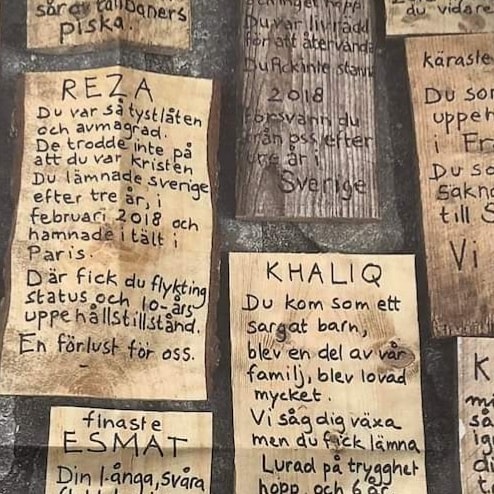 sår av talibaners
piska.
REZA
Du var så tystlåten
och avmagrad.
De trodde inte på
att du var kristen
Du lämnade Sverige
efter tre år, i
februari 2018 och
hamnade i tält i
Paris.
Där fick du flykting
status och 10-års
uppehållstillstånd.
En förlust för oss.
finaste
ESMAT
Din långa, svåra
hopp
Du var livrädd
för att återvända
Du fick inte stanna
2018
försvann du
från oss efter
tre år i
Sverige
KHALIQ
Du kom som ett
sargat barn,
blev en del av vår
familj, blev lovad
mycket.
Vi såg dig växa
men du fick lämna
Lurad på trygghet
hopp, och 6 år
du vidare
käraste
Du som
uppeh
i Fr
Du s
sakn
till S
Vi
K